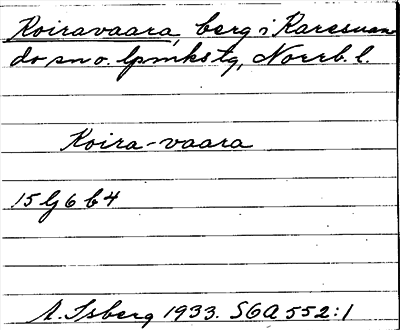 Koiravaara, berg i Karesuan
do sn o. lpmkstg, Norrb. l.
Koira-vaara
15 G 6 b 4
A. Isberg 1933. SGA 552:1